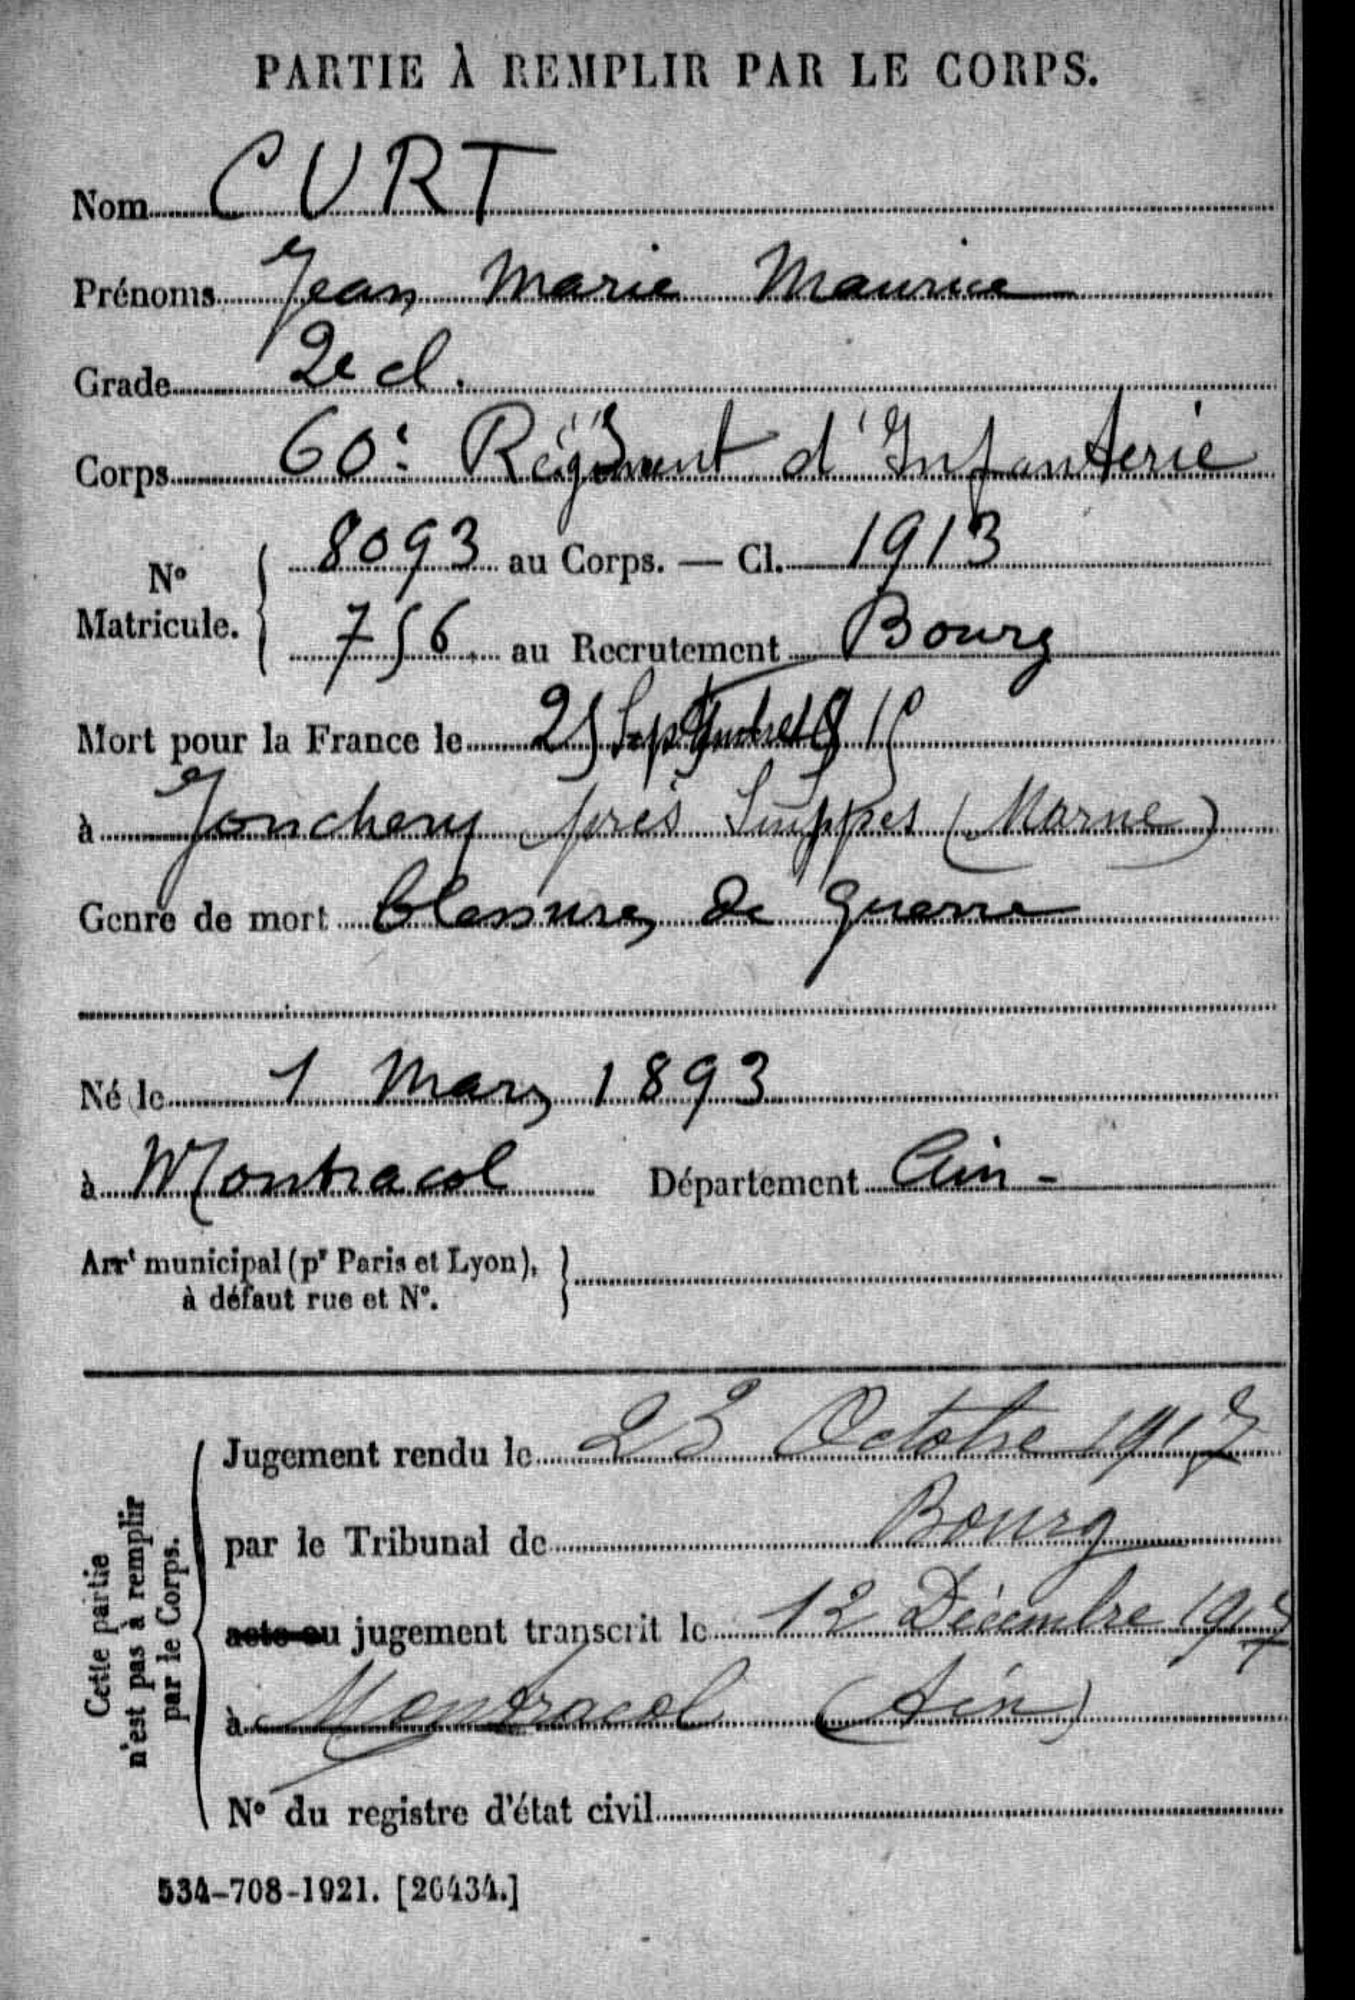 PARTIE À REMPLIR PAR LE CORPS.
Nom CURT
Prénoms Jean Marie Maurice
Grade 2e cl.
Corps 60e Régiment d'Infanterie
N° Matricule. 8093 au Corps. — Cl. 1913
756 au Recrutement Bourg
Mort pour la France le 25 Septembre 15
à Jonchery près Suippes (Marne)
Genre de mort blessures de guerre
Né le 1 Mars 1893
à Montracol Département Ain -
Arrt municipal (pr Paris et Lyon),
à défaut rue et N°.
Cette partie
n'est pas à remplir
par le Corps.
Jugement rendu le 23 Octobre 1917
par le Tribunal de Bourg
acte ou jugement transcrit le 12 Décembre 1917
à Montracol (Ain)
N° du registre d'état civil
534-708-1921. [26434.]